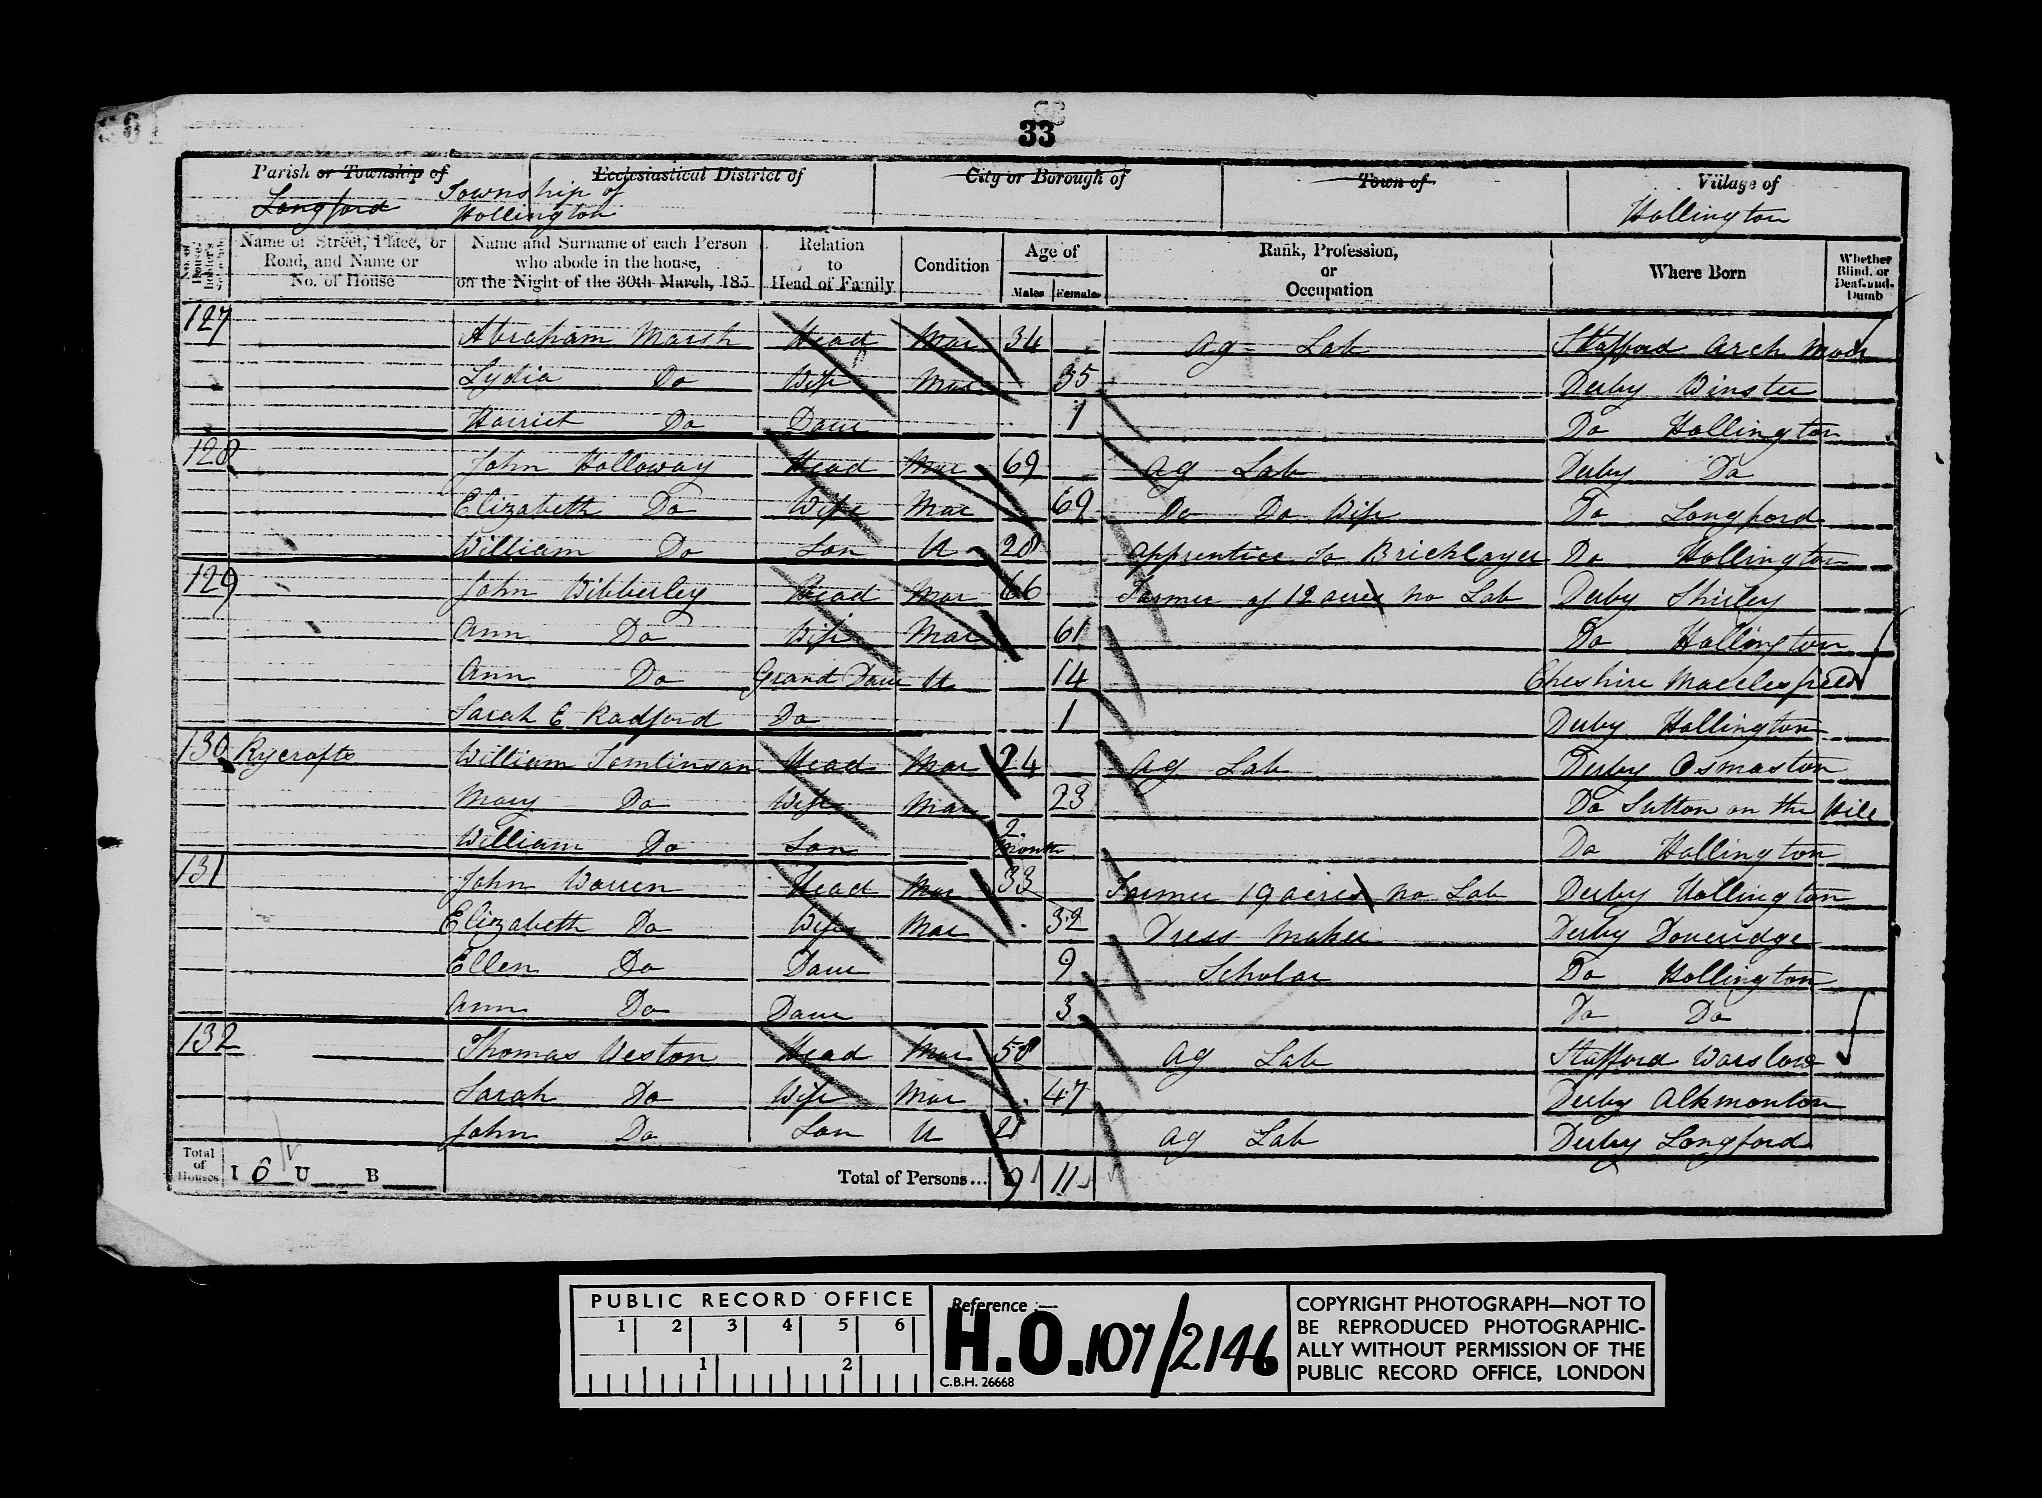 33
Parish or Township of Ecclesiastical District of City or Borough of Town of Village of
Longford Township of Hollington Hollington
No. of House-holder's Schedule Name of Street, Place, or Road, and Name or No. of House Name and Surname of each Person who abode in the house, on the Night of the 30th March, 185 Relation to Head of Family Condition Age of Males Females Rank, Profession, or Occupation Where Born Whether Blind, or Deaf-and-Dumb
127 Abraham Marsh Head Mar 34 Ag Lab Stafford Arch Moor
Lydia Do Wife Mar 35 Derby Winster
Harriet Do Daur 1 Do Hollington
128 John Holloway Head Mar 69 Ag Lab Derby Do
Elizabeth Do Wife Mar 69 Do Do Wife Do Longford
William Do Son U 20 Apprentice to Bricklayer Do Hollington
129 John Wibberley Head Mar 66 Farmer of 12 acres no Lab Derby Shirley
Ann Do Wife Mar 61 Do Hollington
Ann Do Grand Daur U 14 Cheshire Macclesfield
Sarah E Radford Do 1 Derby Hollington
130 Rycrofts William Tomlinson Head Mar 24 Ag Lab Derby Osmaston
Mary Do Wife Mar 23 Do Sutton on the Hill
William Do Son 2 Month Do Hollington
131 John Warren Head Mar 33 Farmer 19 acres no Lab Derby Hollington
Elizabeth Do Wife Mar 32 Dress Maker Derby Doveridge
Ellen Do Daur 9 Scholar Do Hollington
Ann Do Daur 3 Do Do
132 Thomas Weston Head Mar 50 Ag Lab Stafford Warslow
Sarah Do Wife Mar 47 Derby Alkmonton
John Do Son U 21 Ag Lab Derby Longford
Total of Houses I 6 U B Total of Persons... 9 11
PUBLIC RECORD OFFICE
1 2 3 4 5 6
1 2
Reference :—
H.O. 107/2146
C.B.H. 26668
COPYRIGHT PHOTOGRAPH—NOT TO
BE REPRODUCED PHOTOGRAPHIC-
ALLY WITHOUT PERMISSION OF THE
PUBLIC RECORD OFFICE, LONDON